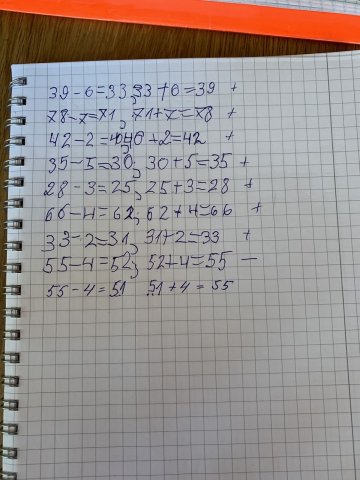 39-6=33; 33+6=39 +
78-7=71; 71+7=78 +
42-2=40; 40+2=42 +
35-5=30; 30+5=35 +
28-3=25; 25+3=28 +
66-4=62; 62+4=66 +
33-2=31; 31+2=33 +
55-4=52; 52+4=55 —
55-4=51 51+4=55